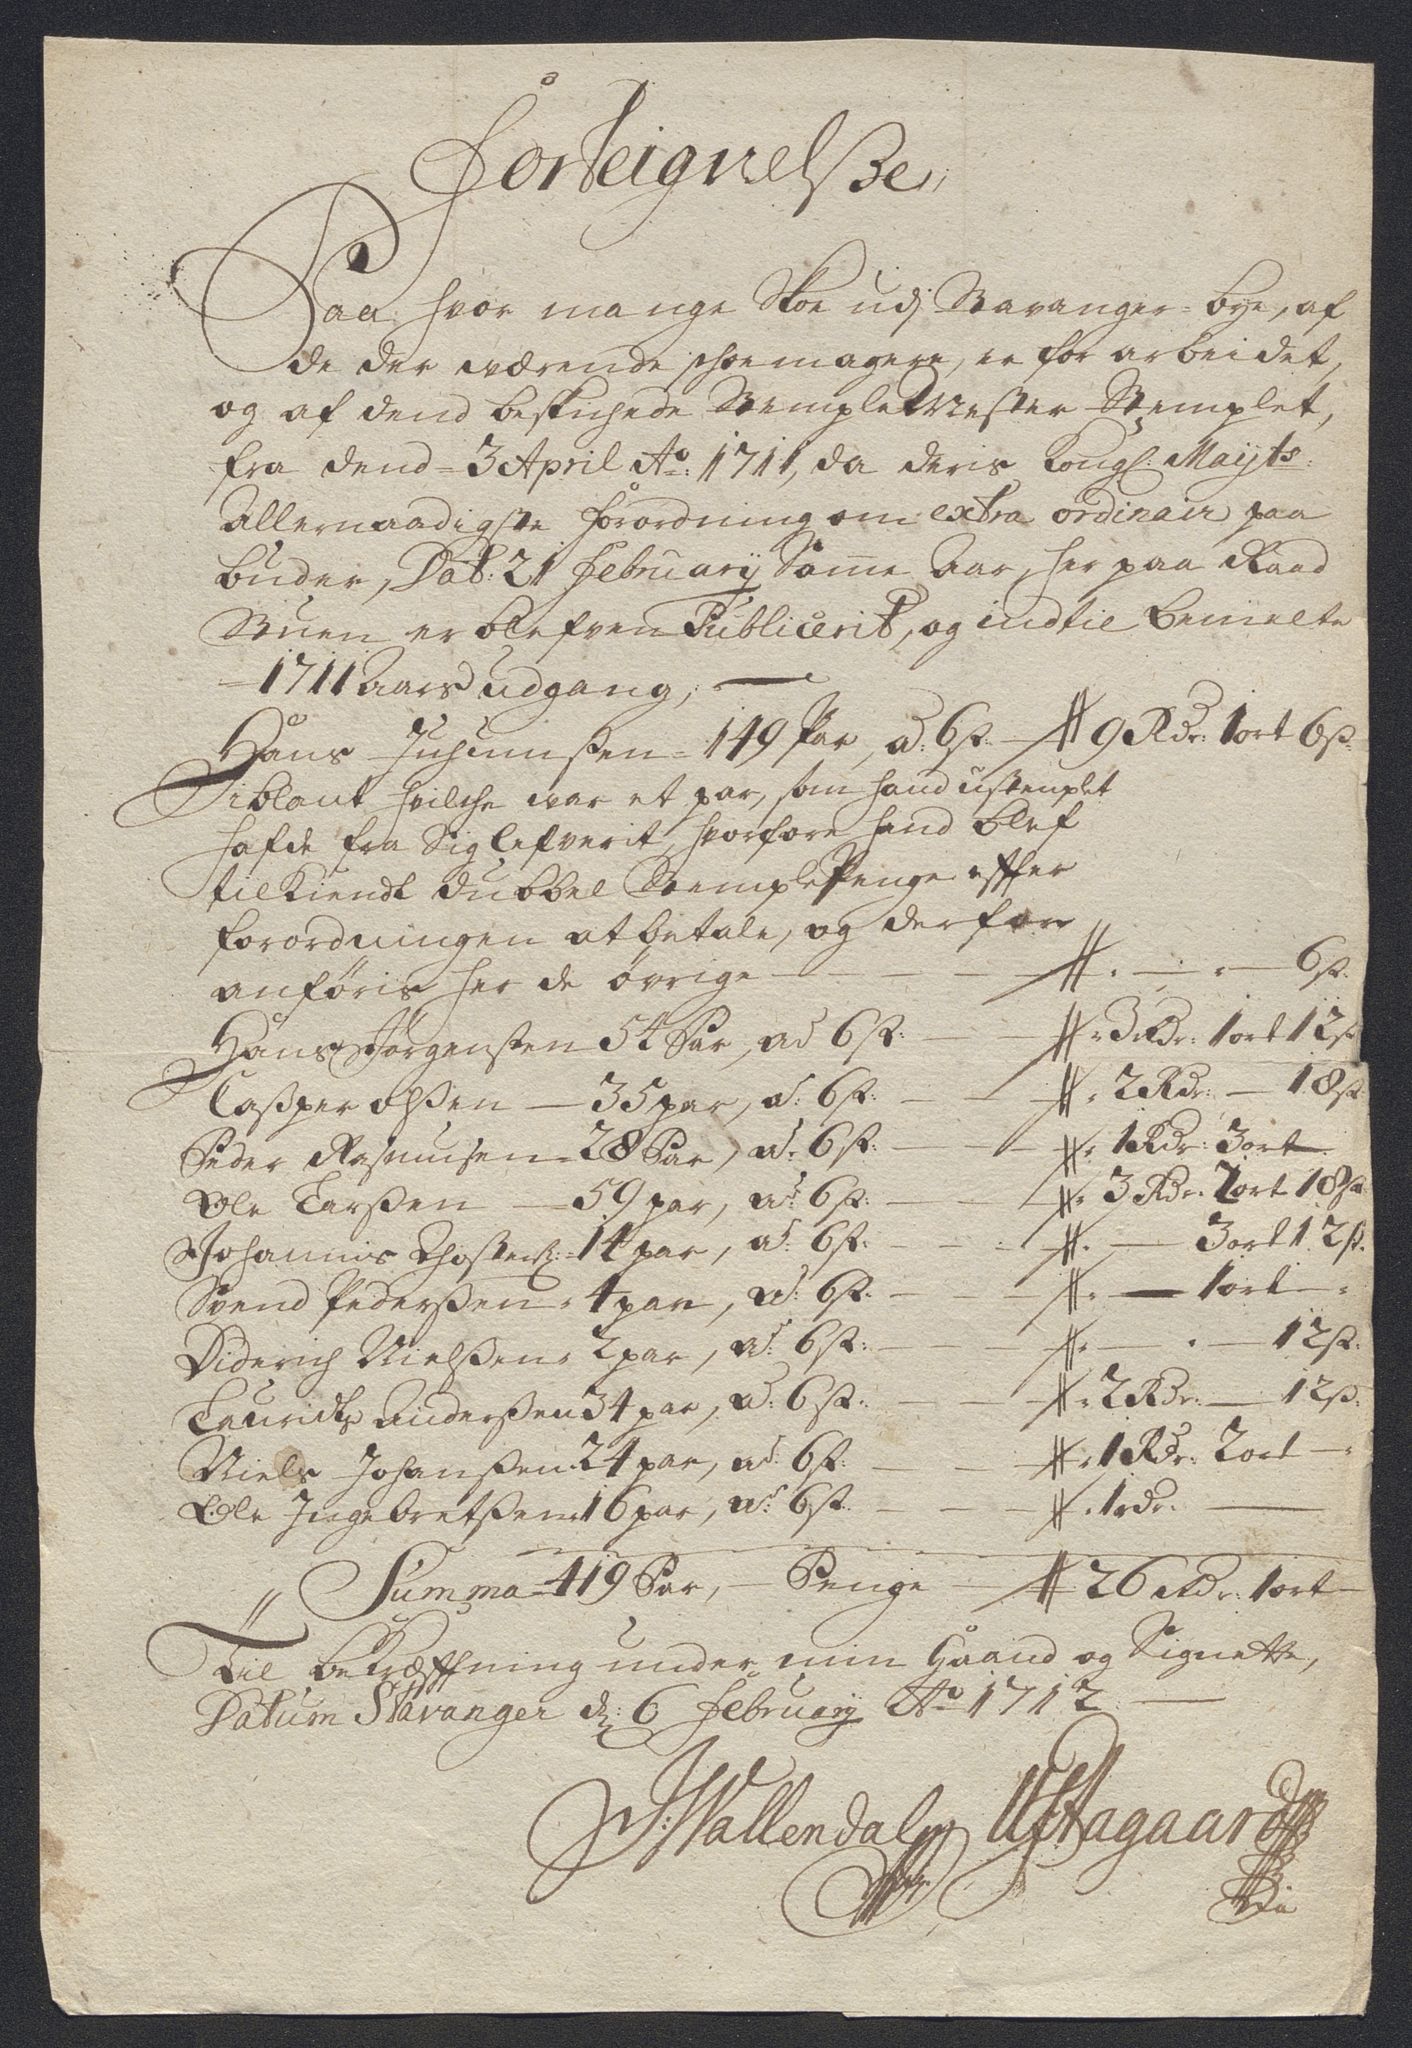 Forteignelsse,
Paa hvor mange Skoe udj Stavanger bye, af
de der værende schoemagere, er forarbeidet,
og af dend beskichede StempletMester Stemplet,
fra dend 3 April Ao: 1711, da deris Kongl: Mayts:
Allernaadigste forordning om extra ordinair paa
buder, Dat: 21 February Same Aar, her paa Raad
Stuen er blefven Publicerit, og indtil bemelte
1711 Aars udgang,
Hans Juhumsen 149 Par, ad 6s: 9 Rdr: 1 ort 6s:
Iblant hvilche var et par, som hand ustemplet
hafde fra Sig lefverit, hvorfore hand blef
tilkiendt dubbel StemplePenge efter
forordningen at betale, og derfor
anføris her de øvrige 6s:
Hans Jørgensen 54 Par, ad 6s: 3 Rdr: 1 ort 12s
Casper olssen 35 par, ad 6s: 2 Rdr: 18s:
Peder Rasmusen 28 Par, ad 6s: 1 Rdr: 3 ort
Ole Larssen 59 par, ad 6s: 3 Rdr: 2 ort 18s
Johannis 14 par, ad 6s: 3 ort 12s.
Svend Pederssen 4 par, ad 6s: 1 ort
Diderich Nielssen 2 par, ad 6s: 12s:
Lauridts Anderssen 34 par, ad 6s: 2 Rdr: 12s:
Niels Johanssen 24 par, ad 6s: 1 Rdr: 2 ort
Ole Ingebretssen 16 par, ad 6s: 1 rdr:
Summa 419 Par, Penge 26 Rdr: 1 ort
Til bekræfftning under min Haand og Signette,
Datum Stavanger d: 6 February Ao 1712
Wallendal